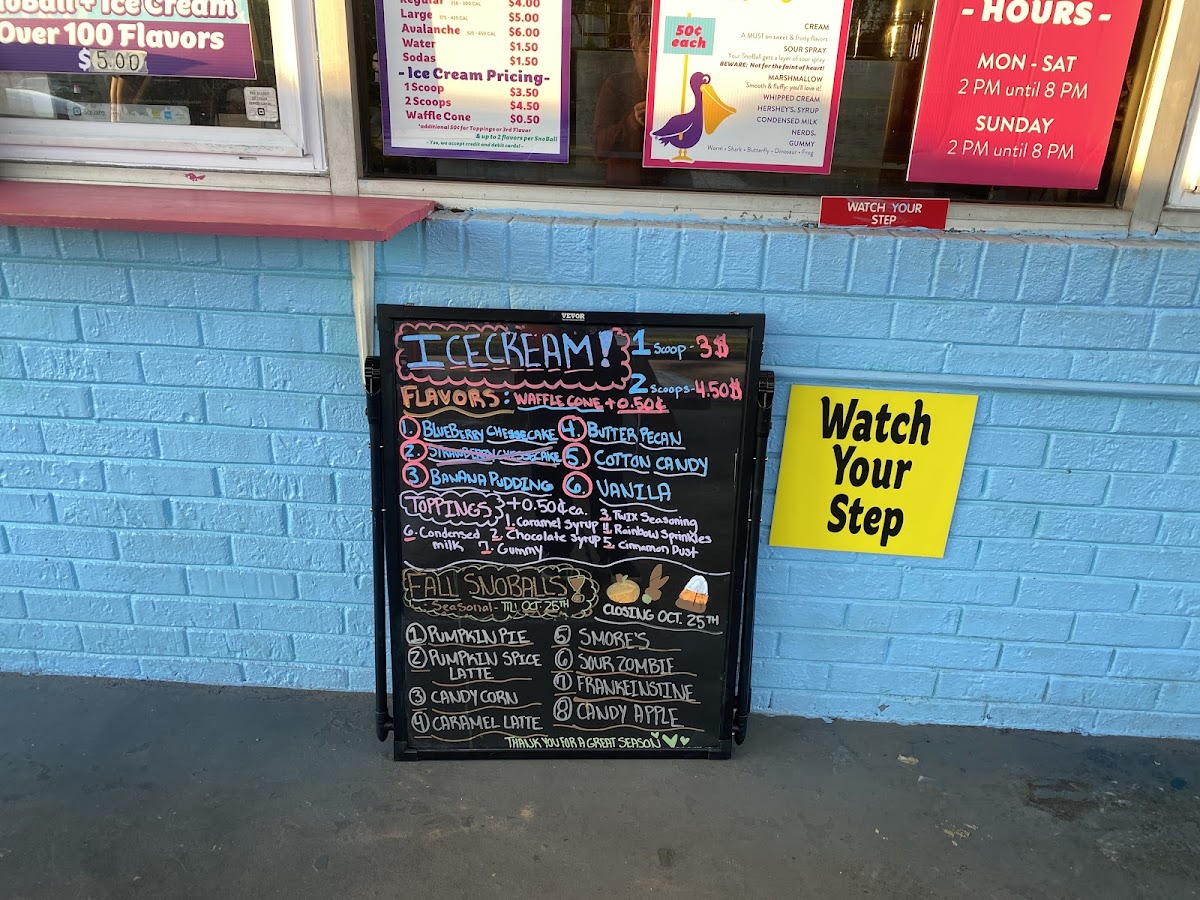 noBall + Ice Cream
Over 100 Flavors
$5.00
Regular 250 - 300 CAL $4.00
Large 375 - 425 CAL $5.00
Avalanche 525 - 650 CAL $6.00
Water $1.50
Sodas $1.50
- Ice Cream Pricing-
1 Scoop $3.50
2 Scoops $4.50
Waffle Cone $0.50
*additional 50¢ for Toppings or 3rd Flavor
& up to 2 flavors per SnoBall
- Yes, we accept credit and debit cards! -
50¢
each
CREAM
A MUST on sweet & fruity flavors
SOUR SPRAY
Your SnoBall gets a layer of sour spray
BEWARE: Not for the faint of heart!
MARSHMALLOW
Smooth & fluffy: you'll love it!
WHIPPED CREAM
HERSHEY'S. SYRUP
CONDENSED MILK
NERDS.
GUMMY
Worm • Shark • Butterfly • Dinosaur • Frog
- HOURS -
MON - SAT
2 PM until 8 PM
SUNDAY
2 PM until 8 PM
WATCH YOUR
STEP
VEVOR
ICECREAM! 1 Scoop - 3$
2 Scoops - 4.50$
FLAVORS: WAFFLE CONE + 0.50¢
1. BLUEBERRY CHESSECAKE
2. STRAWBERRY CHESSECAKE
3. BANANA PUDDING
4. BUTTER PECAN
5 COTTON CANDY
6. VANILA
TOPPINGS +0.50¢ ea.
1. Caramel Syrup
2. Chocolate Syrup
3. Twix Seasoning
4. Rainbow Sprinkles
5. Cinnamon Dust
6. Condensed
milk
7. Gummy
FALL SNOBALLS
Seasonal - Till OCT. 25TH
CLOSING OCT. 25TH
1 PUMPKIN PIE
2 PUMPKIN SPICE
LATTE
3 CANDY CORN
4 CARAMEL LATTE
5 SMORE'S
6 SOUR ZOMBIE
7 FRANKEINSTINE
8 CANDY APPLE
THANK YOU FOR A GREAT SEASON
Watch
Your
Step